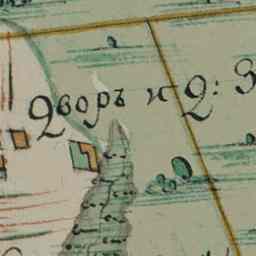 Дворъ и Д: З